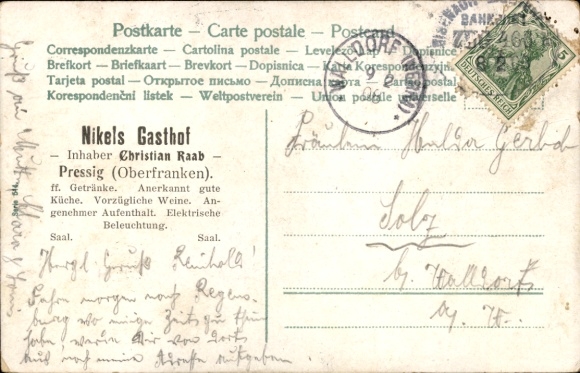 Postkarte — Carte postale — Postcard
Correspondenzkarte — Cartolina postale — Levelező-Lap — Dopisnice
Brefkort — Briefkaart — Brevkort — Dopisnica — Karta Korespondencyjna
Tarjeta postal — Открытое письмо — Дописна карта — Cartao postal
Korespondenční listek — Weltpostverein — Union postale universelle
WALLDORF
9 2
06
BAHNPOST
ZUG
8 2
5
DEUTSCHES REICH
Nikels Gasthof
— Inhaber Christian Raab —
Pressig (Oberfranken).
ff. Getränke. Anerkannt gute
Küche. Vorzügliche Weine. An-
genehmer Aufenthalt. Elektrische
Beleuchtung.
Saal. Saal.
Serie
Gruß
Herzl. Gruß Reinhold!
Fahre morgen nach Regens-
burg wo einige Zeit zu thun
habe, werde Dir von dort
aus noch meine Adresse aufgeben.
Fräulein
Solz
b. Walldorf
a. W.